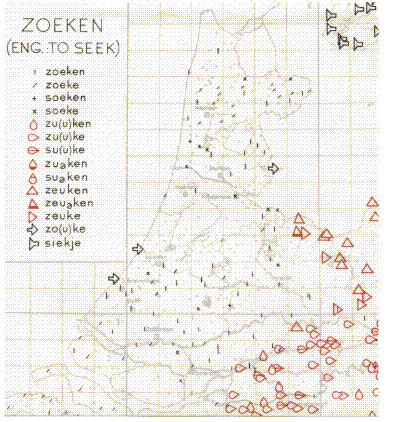 ZOEKEN
(ENG. TO SEEK)
zoeken
zoeke
soeken
soeke
zu(u)ken
zu(u)ke
su(u)ke
zuəken
suəken
zeuken
zeuəken
zeuke
zo(u)ke
siekje